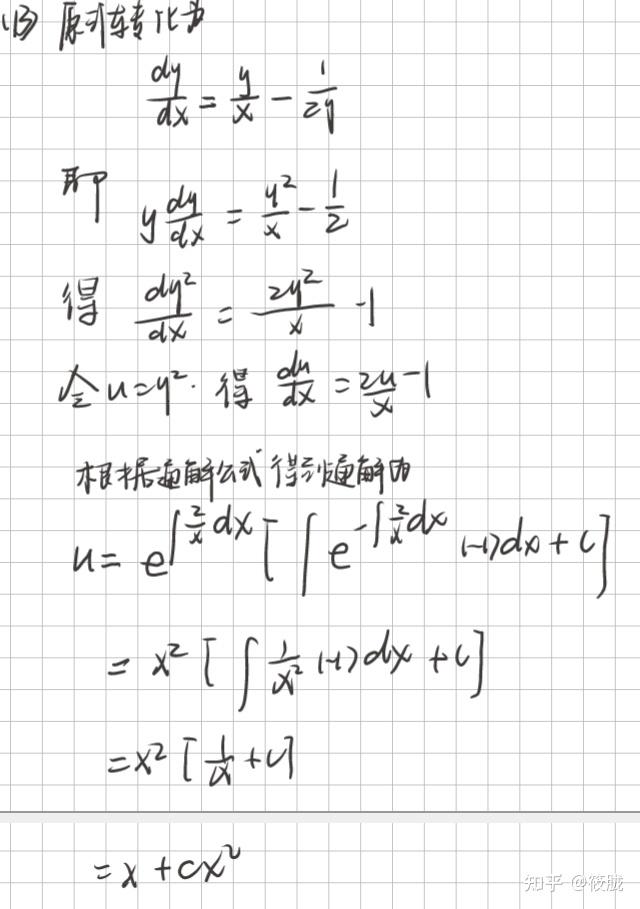 (13) 原式转化为
dy/dx = y/x - 1/2y
即 y dy/dx = y²/x - 1/2
得 dy²/dx = 2y²/x - 1
令 u=y². 得 du/dx = 2u/x - 1
根据通解公式得到通解为
u = e^∫2/x dx [ ∫ e^-∫2/x dx (-1)dx + C ]
= x² [ ∫ 1/x² (-1)dx + C ]
= x² [ 1/x + C ]
= x + cx²
知乎 @筱胧